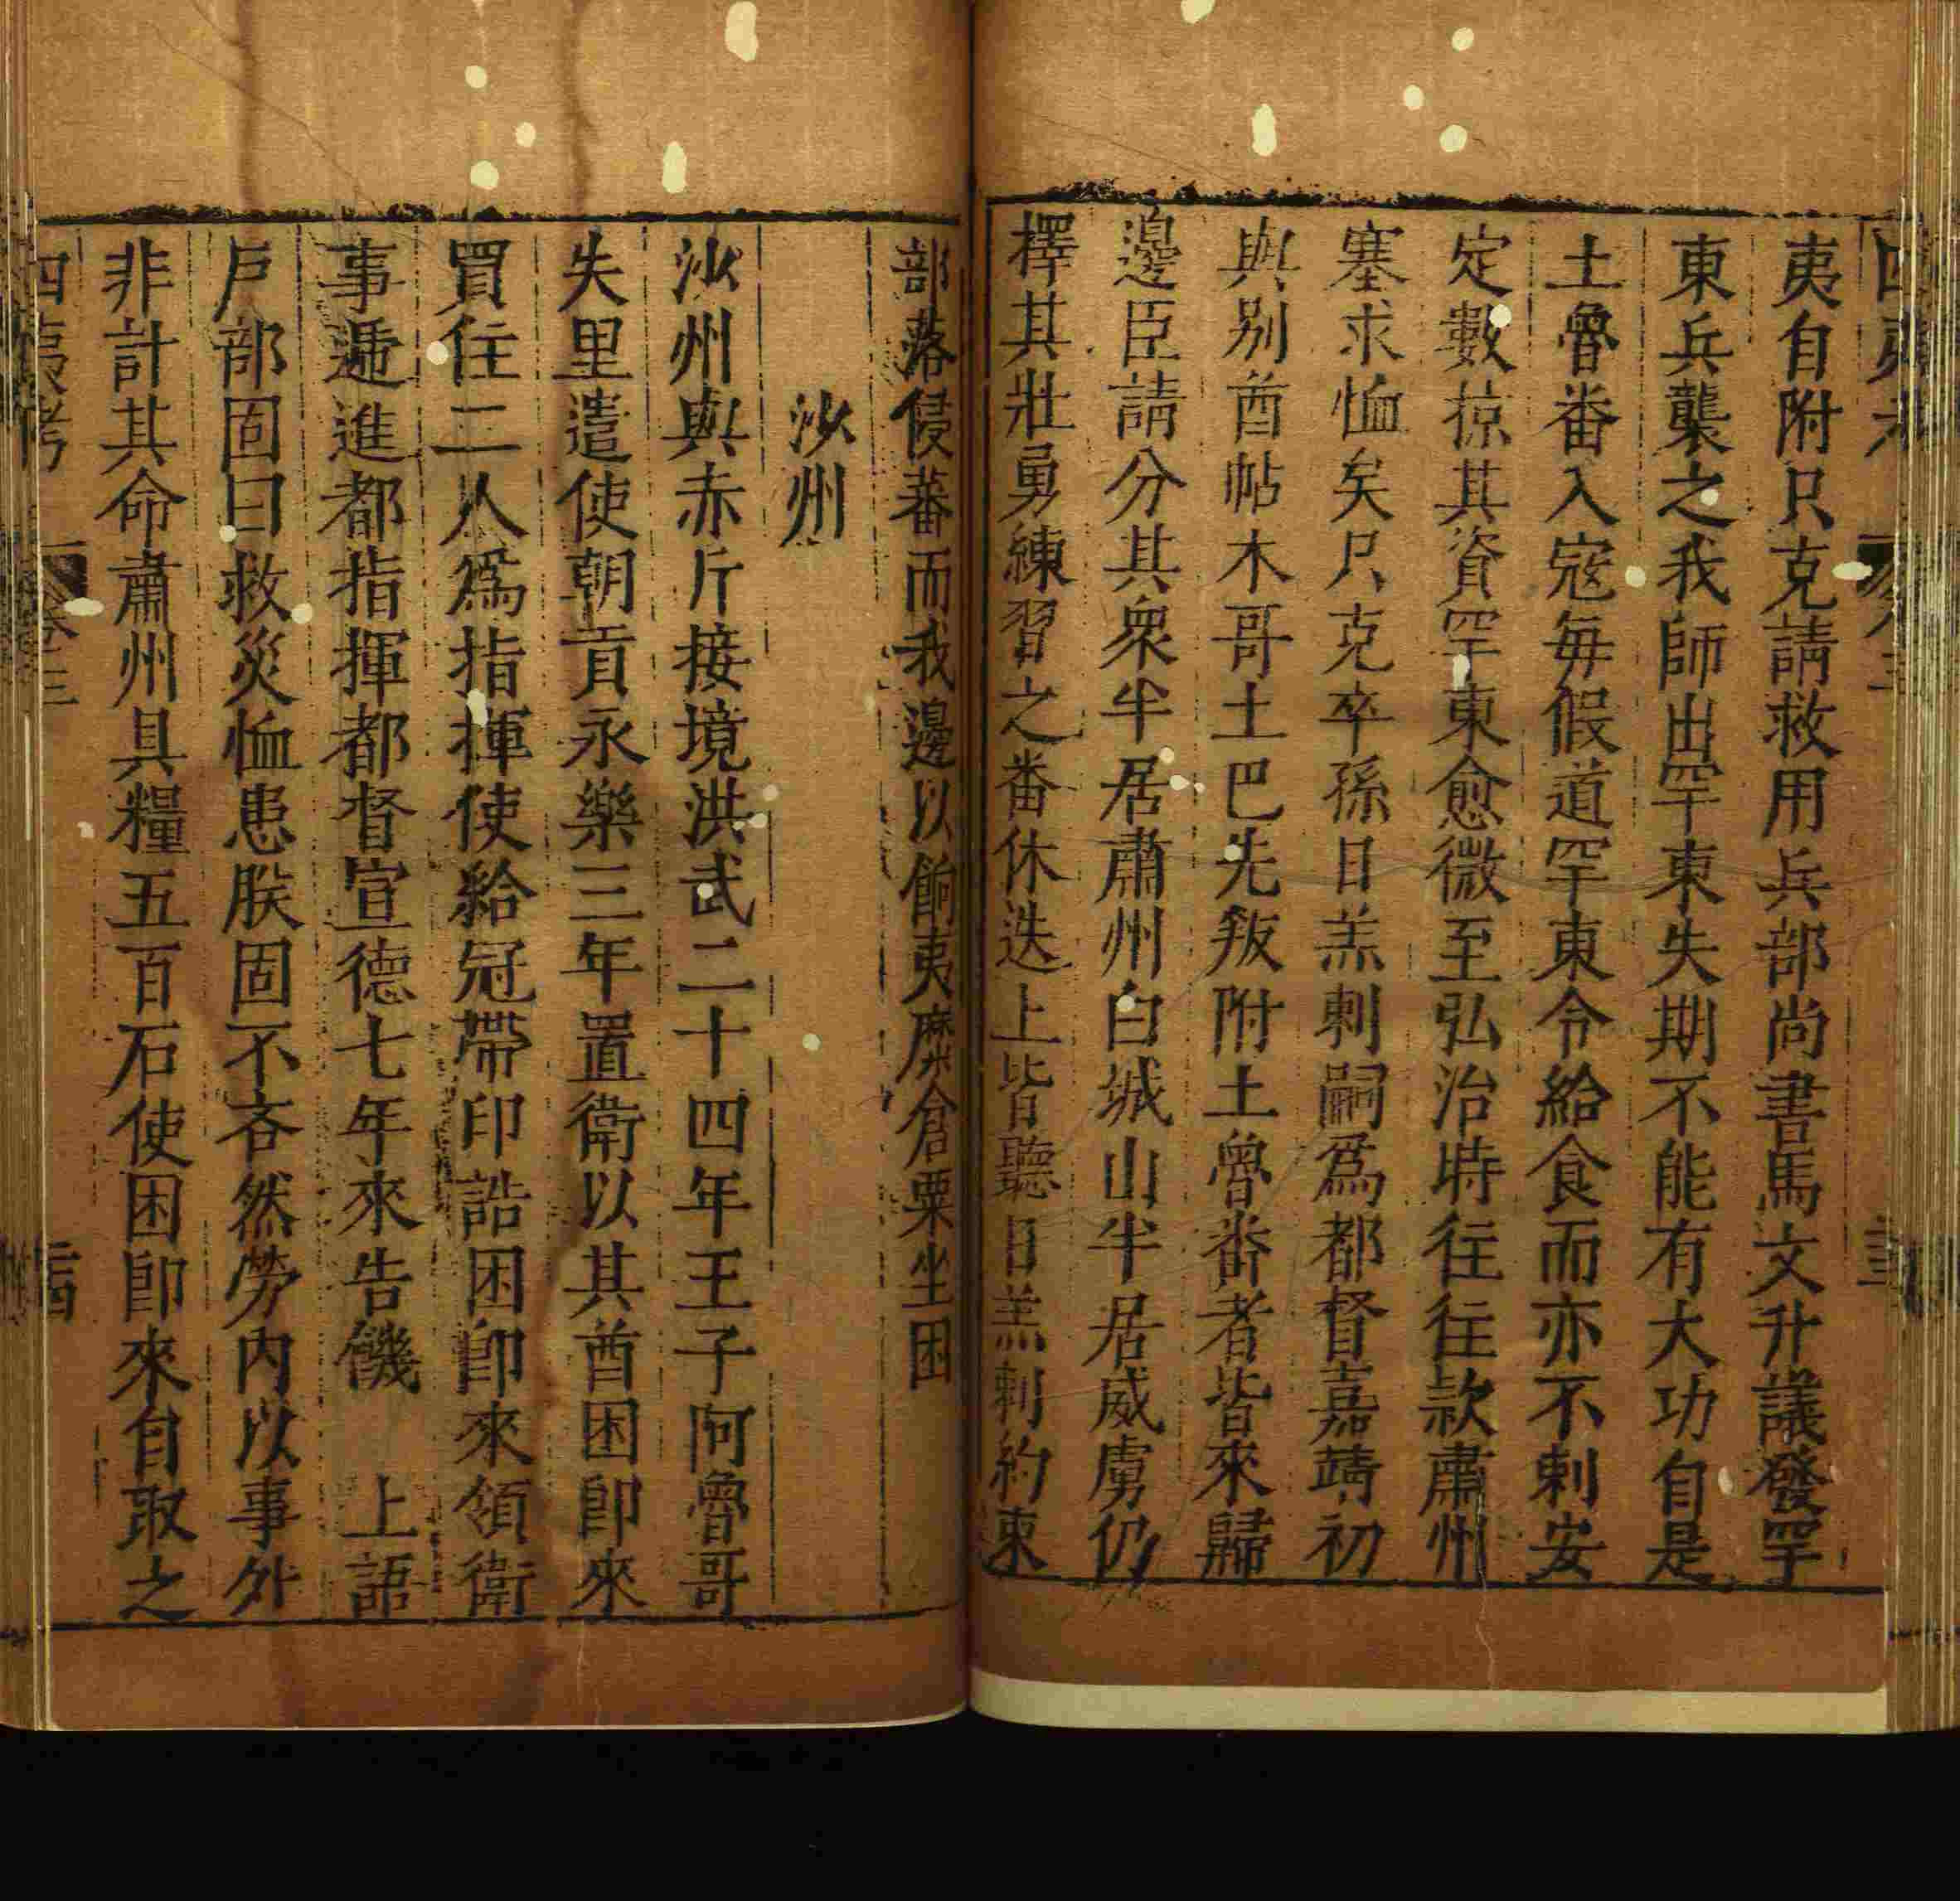 夷自附只克請救用兵部尚書馬文升議發罕
東兵襲之我師出罕東失期不能有大功自是
土魯番入寇每假道罕東令給食而亦不剌安
定數掠其資罕東愈微至弘治時往往款肅州
塞求恤矣只克卒孫日羔剌嗣爲都督嘉靖初
與别酋帖木哥土巴先叛附土魯番者皆來歸
邊臣請分其衆半居肅州白城山半居威虜仍
擇其壯勇練習之番休迭上皆聽日羔剌約束
部落侵蕃而我邊以餉夷糜倉粟坐困
沙州
沙州與赤斤接境洪武二十四年王子阿魯哥
失里遣使朝貢永樂三年置衛以其酋困即來
買住二人爲指揮使給冠帶印誥困即來領衛
事遞進都指揮都督宣德七年來告饑 上語
戶部固曰救災恤患朕固不吝然勞内以事外
非計其命肅州具糧五百石使困即來自取之
四夷考 卷三